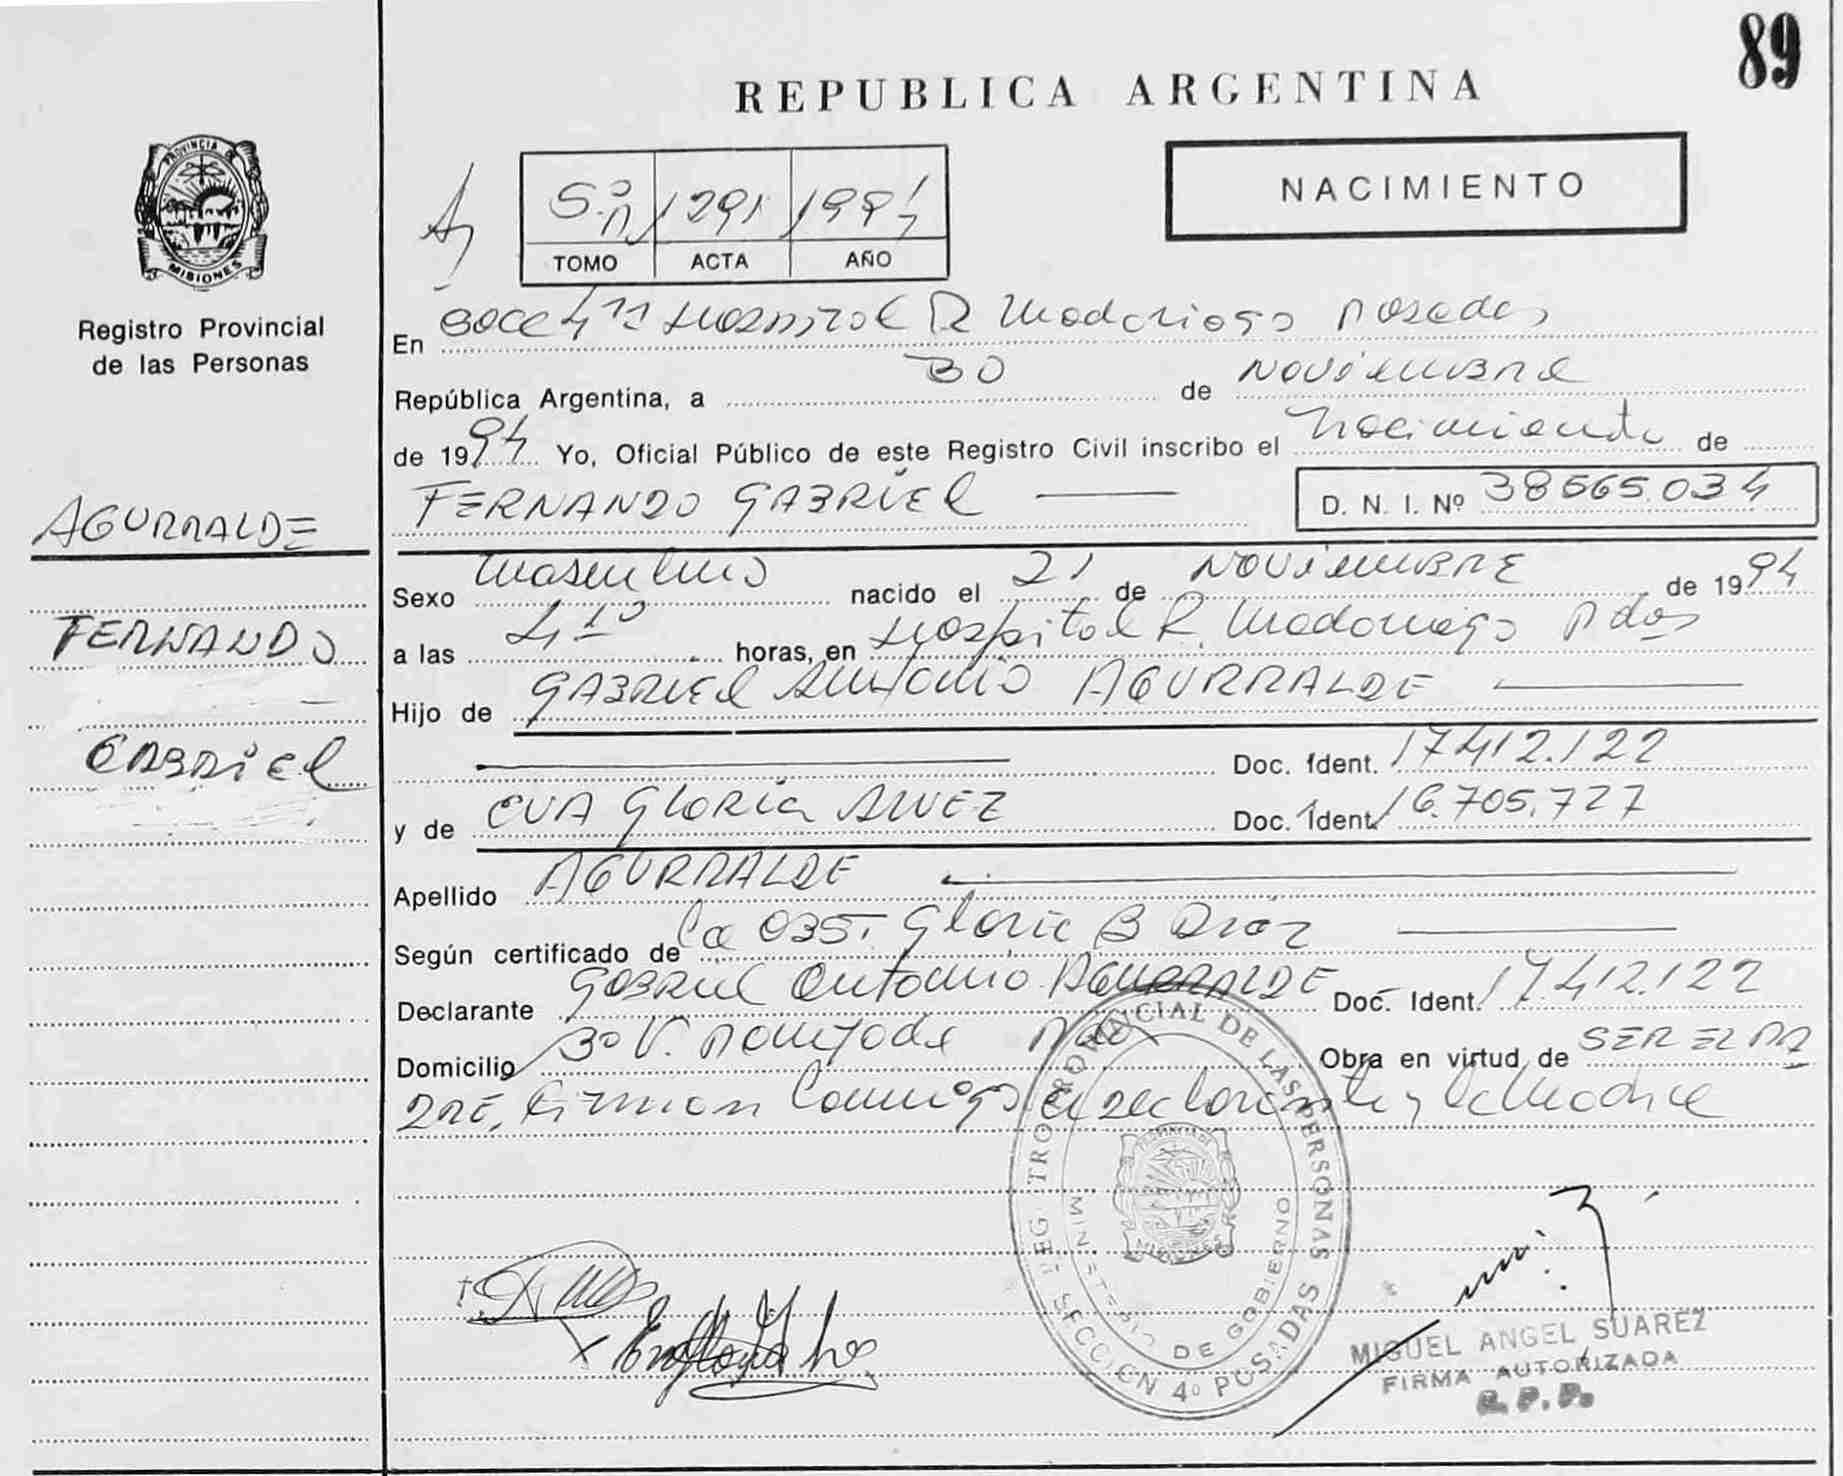 89
REPUBLICA ARGENTINA
NACIMIENTO
1291 1994
TOMO ACTA AÑO
PROVINCIA DE
MISIONES
Registro Provincial
de las Personas
En Hospital R Madariaga Posadas
República Argentina, a 30 de Noviembre
de 1994 Yo, Oficial Público de este Registro Civil inscribo el Nacimiento de
FERNANDO GABRIEL D. N. I. Nº 38565.034
AGURRALDE
FERNANDO
GABRIEL
Sexo Masculino nacido el 21 de NOVIEMBRE de 1994
a las 4 10 horas, en Hospital R. Madariaga Pdas
Hijo de GABRIEL Antonio AGURRALDE
Doc. Ident. 17.412.122
y de EVA Gloria ALVEZ Doc. Ident. 16.705.727
Apellido AGURRALDE
Según certificado de la OBST. Gloria B Diaz
Declarante Gabriel Antonio AGURRALDE Doc. Ident. 17.412.122
Domicilio Obra en virtud de SER EL PA
DRE, Firman Conmigo el declarante y la Madre
REGISTRO PROVINCIAL DE LAS PERSONAS
MINISTERIO DE GOBIERNO
SECCION 4º POSADAS
PROVINCIA DE
MISIONES
MIGUEL ANGEL SUAREZ
FIRMA AUTORIZADA
R.P.P.